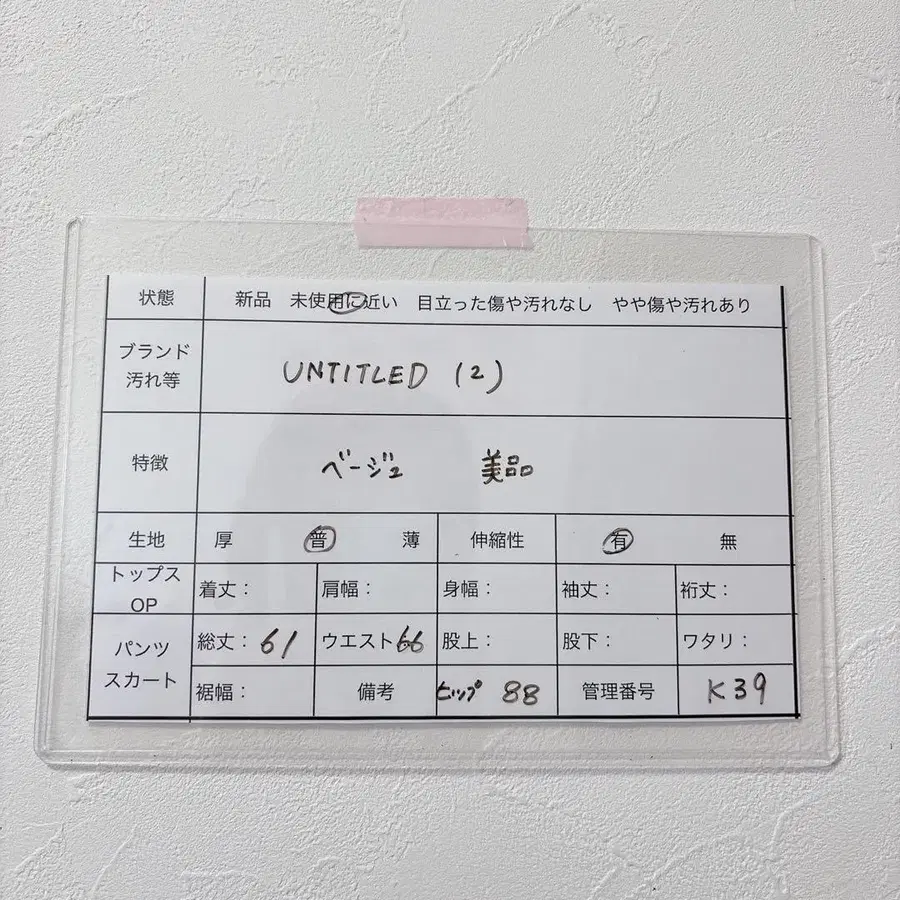 状態 新品 未使用に近い 目立った傷や汚れなし やや傷や汚れあり
ブランド
汚れ等
UNTITLED (2)
特徴 ベージュ 美品
生地 厚 普 薄 伸縮性 有 無
トップス
OP
着丈: 肩幅: 身幅: 袖丈: 裄丈:
パンツ
スカート
総丈: 61 ウエスト 66 股上: 股下: ワタリ:
裾幅: 備考 ヒップ 88 管理番号 K39